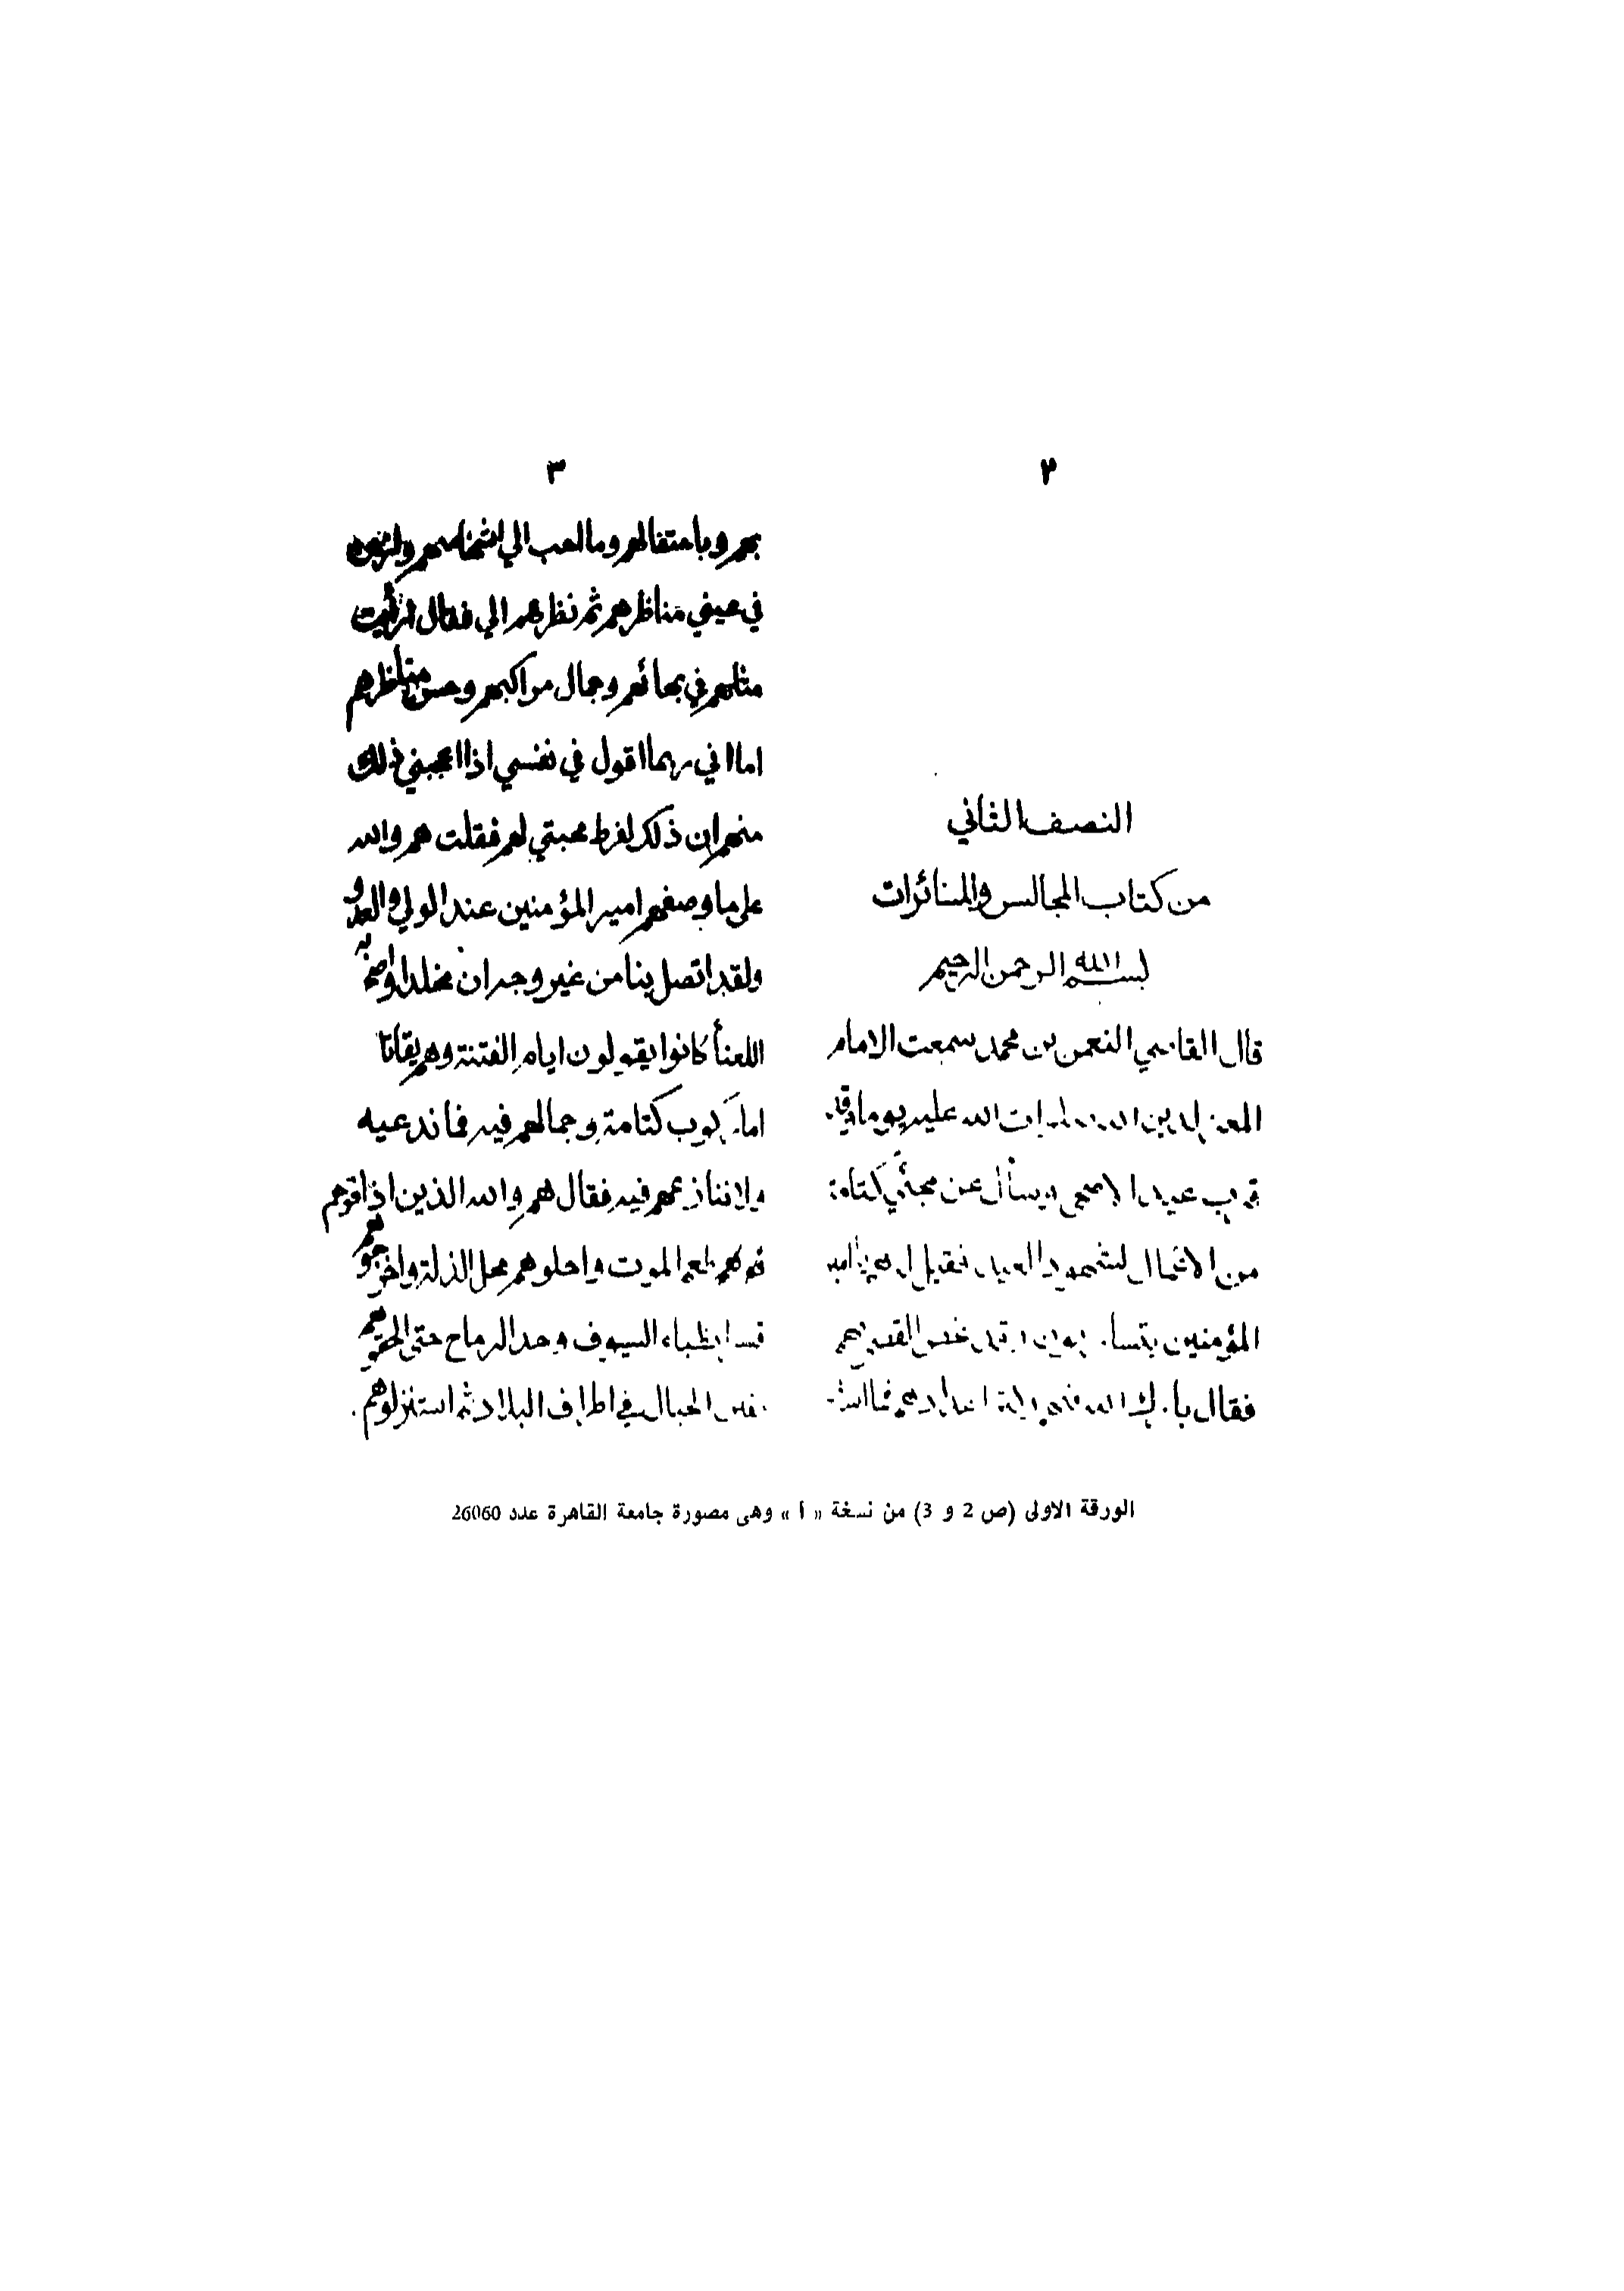 ٢
النصف الثاني
من كتاب المجالس والمسائرات
بسم الله الرحمن الرحيم
قال القاضي النعمن بن محمد سمعت الامام
المعز لدين الله صلوات الله عليه يوما وقد
قرب عيد الاضحى ويسأل عن مجئي كتامة
من الاعمال لشهود العيد فقيل له يا امير
المؤمنين يتسابقون وقد
فقال بارك الله فيهم
٣
بهم وباحتفالهم وما احب الي اشخاصهم وازين
في عيني مناظرهم ثم نظر الي فقال ارأيت
مثلهم في بهائهم وجمال مراكبهم وحسن مناظرهم
اما اني ربما اقول في نفسي اذا اعجبني ذلك
منهم ان ذلك لفرط محبتي لهم فقلت هم والله
على ما وصفهم امير المؤمنين عند الولي والعدو
ولقد اتصل بنا من غير وجه ان مخلدا واصحابه
اللعناء كانوا يقولون ايام الفتنة وهم يقاتلونا
اما ركوب كتامة وجمالهم فيه فما ندعيه
ولا ننازعهم فيه فقال هم والله الذين اذاقوهم
طعم الموت واحلوهم محل الذلة واخرجوهم
قسرا بظباء السيوف وحد الرماح حتى الحقوهم
الجبال في اطراف البلاد ثم استنزلوهم
الورقة الاولى (ص 2 و 3) من نسخة « أ » وهى مصورة جامعة القاهرة عدد 26060